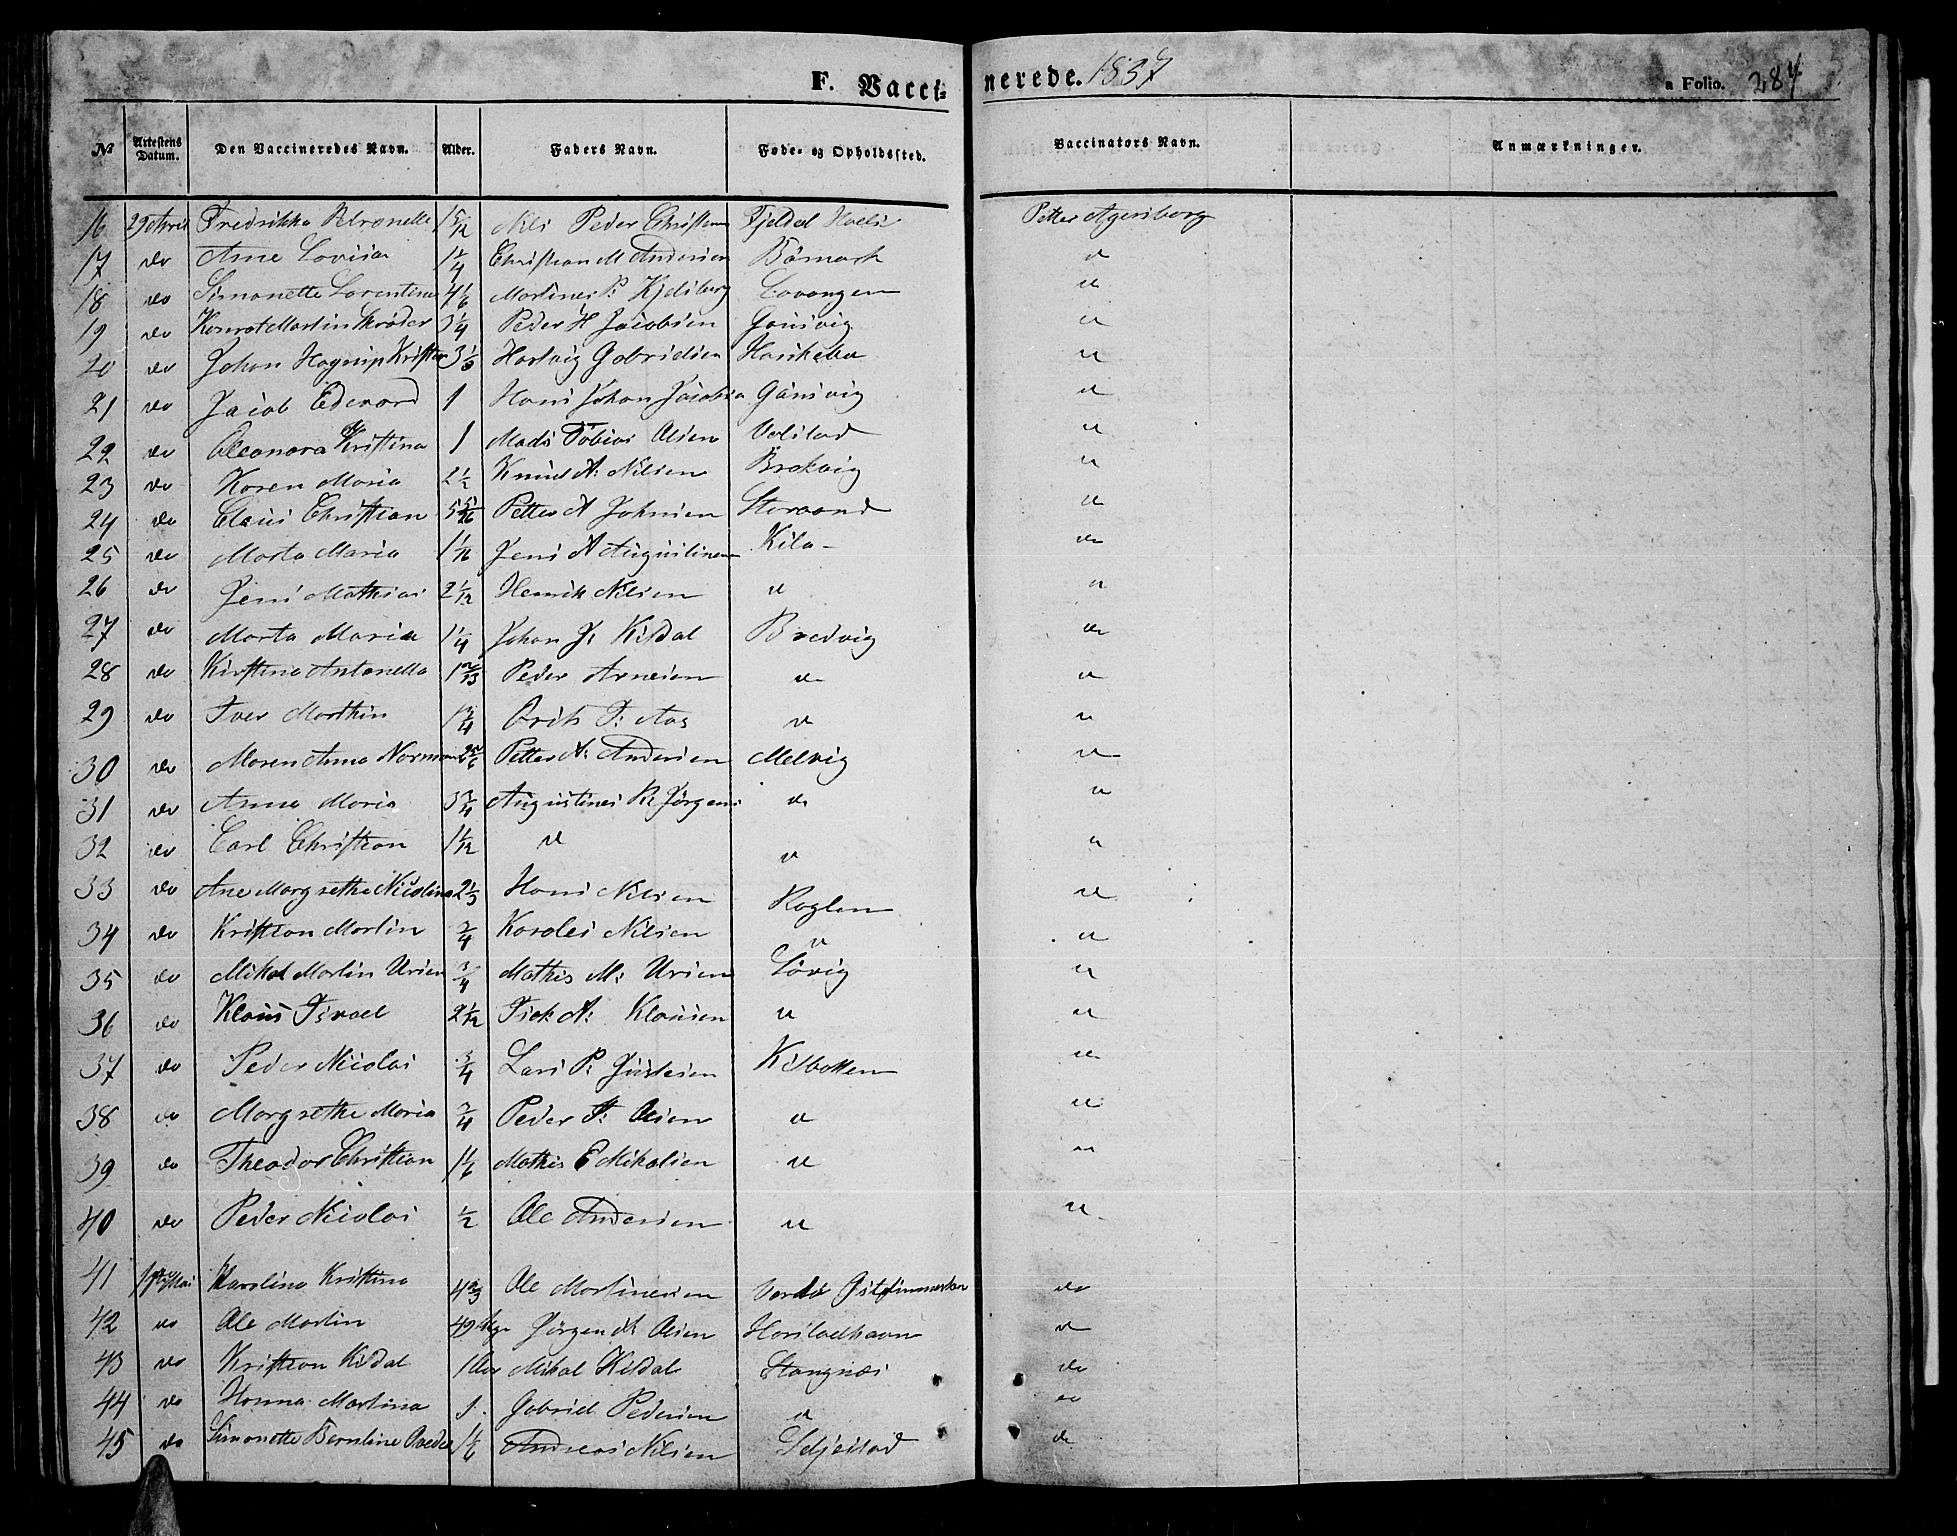 F. Vacci-
nerede. 1837
a Folio. 287
№ | Attestens Datum. | Den Vaccineredes Navn. | Alder. | Faders Navn. | Føde- og Opholdssted. | Vaccinators Navn. | Anmærkninger.
16 | 29 April | Fredrikka Petronelle | 1 5/12 | Nils Peder Christen | Fjeldal | Petter Agersborg
17 | do | Anne Lovisa | 1 1/4 | Christian M Andersen | Bömark | d
18 | do | Simonette Lorentine | 4 1/6 | Martines P: Kjelsberg | Lavangen | d
19 | do | Konrat Martin Skröder | 3 1/4 | Peder H Jacobsen | Gausvig | d
20 | do | Johan Hagrup Kristen | 3 1/3 | Hartvig Gabrielsen | | d
21 | do | Jacob Edevard | 1 | Hans Johan Jacobsen | Gausvig | d
22 | do | Eleonora Kristina | 1 | Mads Tobias Olsen | Volstad | d
23 | do | Karen Maria | 2 1/2 | Knud A: Nilsen | Brokvig | d
24 | do | Claus Christian | 5 | Petter A Johnsen | Storaand | d
25 | do | Marta Maria | 1 | Jens A Augustinsen | Kila | do
26 | do | Jens Mathias | 2 1/12 | Henrik Nilsen | d | d
27 | do | Marta Maria | 1 1/4 | Johan J: Kildal | Bredvig | do
28 | do | Kirstina Antonella | 1 2/3 | Peder Arnesen | d | d
29 | do | Iver Marthin | 1 3/4 | T: Aas | d | d
30 | do | Maren Anna Norman | 2 5/6 | Petter A: Andersen | Melvig | d
31 | do | Anne Maria | 3 3/4 | Augustines R: Jörgens | do | d
32 | do | Carl Christian | 1 1/12 | d | d | d
33 | do | Ane Margrethe Nicolina | 2 1/3 | Hans Nilsen | Roglen | d
34 | do | Kristian Martin | 3/4 | Karoles Nilsen | d | d
35 | do | Mikal Martin Ursen | 3/4 | Mathis M: Ursen | Lövig | d
36 | do | Klaus Israel | 2 1/12 | Isak A: Klausen | d | d
37 | do | Peder Nicolai | 3/4 | Lars P: | Kilbotten | do
38 | do | Margrethe Maria | 3/4 | Peder T: Olsen | d | d
39 | do | Theodor Christian | 1 1/6 | Mathis E Mikalsen | d | d
40 | do | Peder Nicolai | 1/2 | Ole Andersen | d | d
41 | Mai | Karolina Kristina | 4 2/3 | Ole Martinesen | Vardö Östfinmarken | do
42 | do | Ole Martin | 49 Uger | Jörgen A Olsen | Harstadhavn | d
43 | do | Kristian Kildal | 1 Aar | Mikal Kildal | Stangnæs | do
44 | do | Hanna Martina | 1 | Gabriel Pedersen | d | do
45 | do | Simonette Berntine | 1 1/6 | Andreas Nilsen | | do